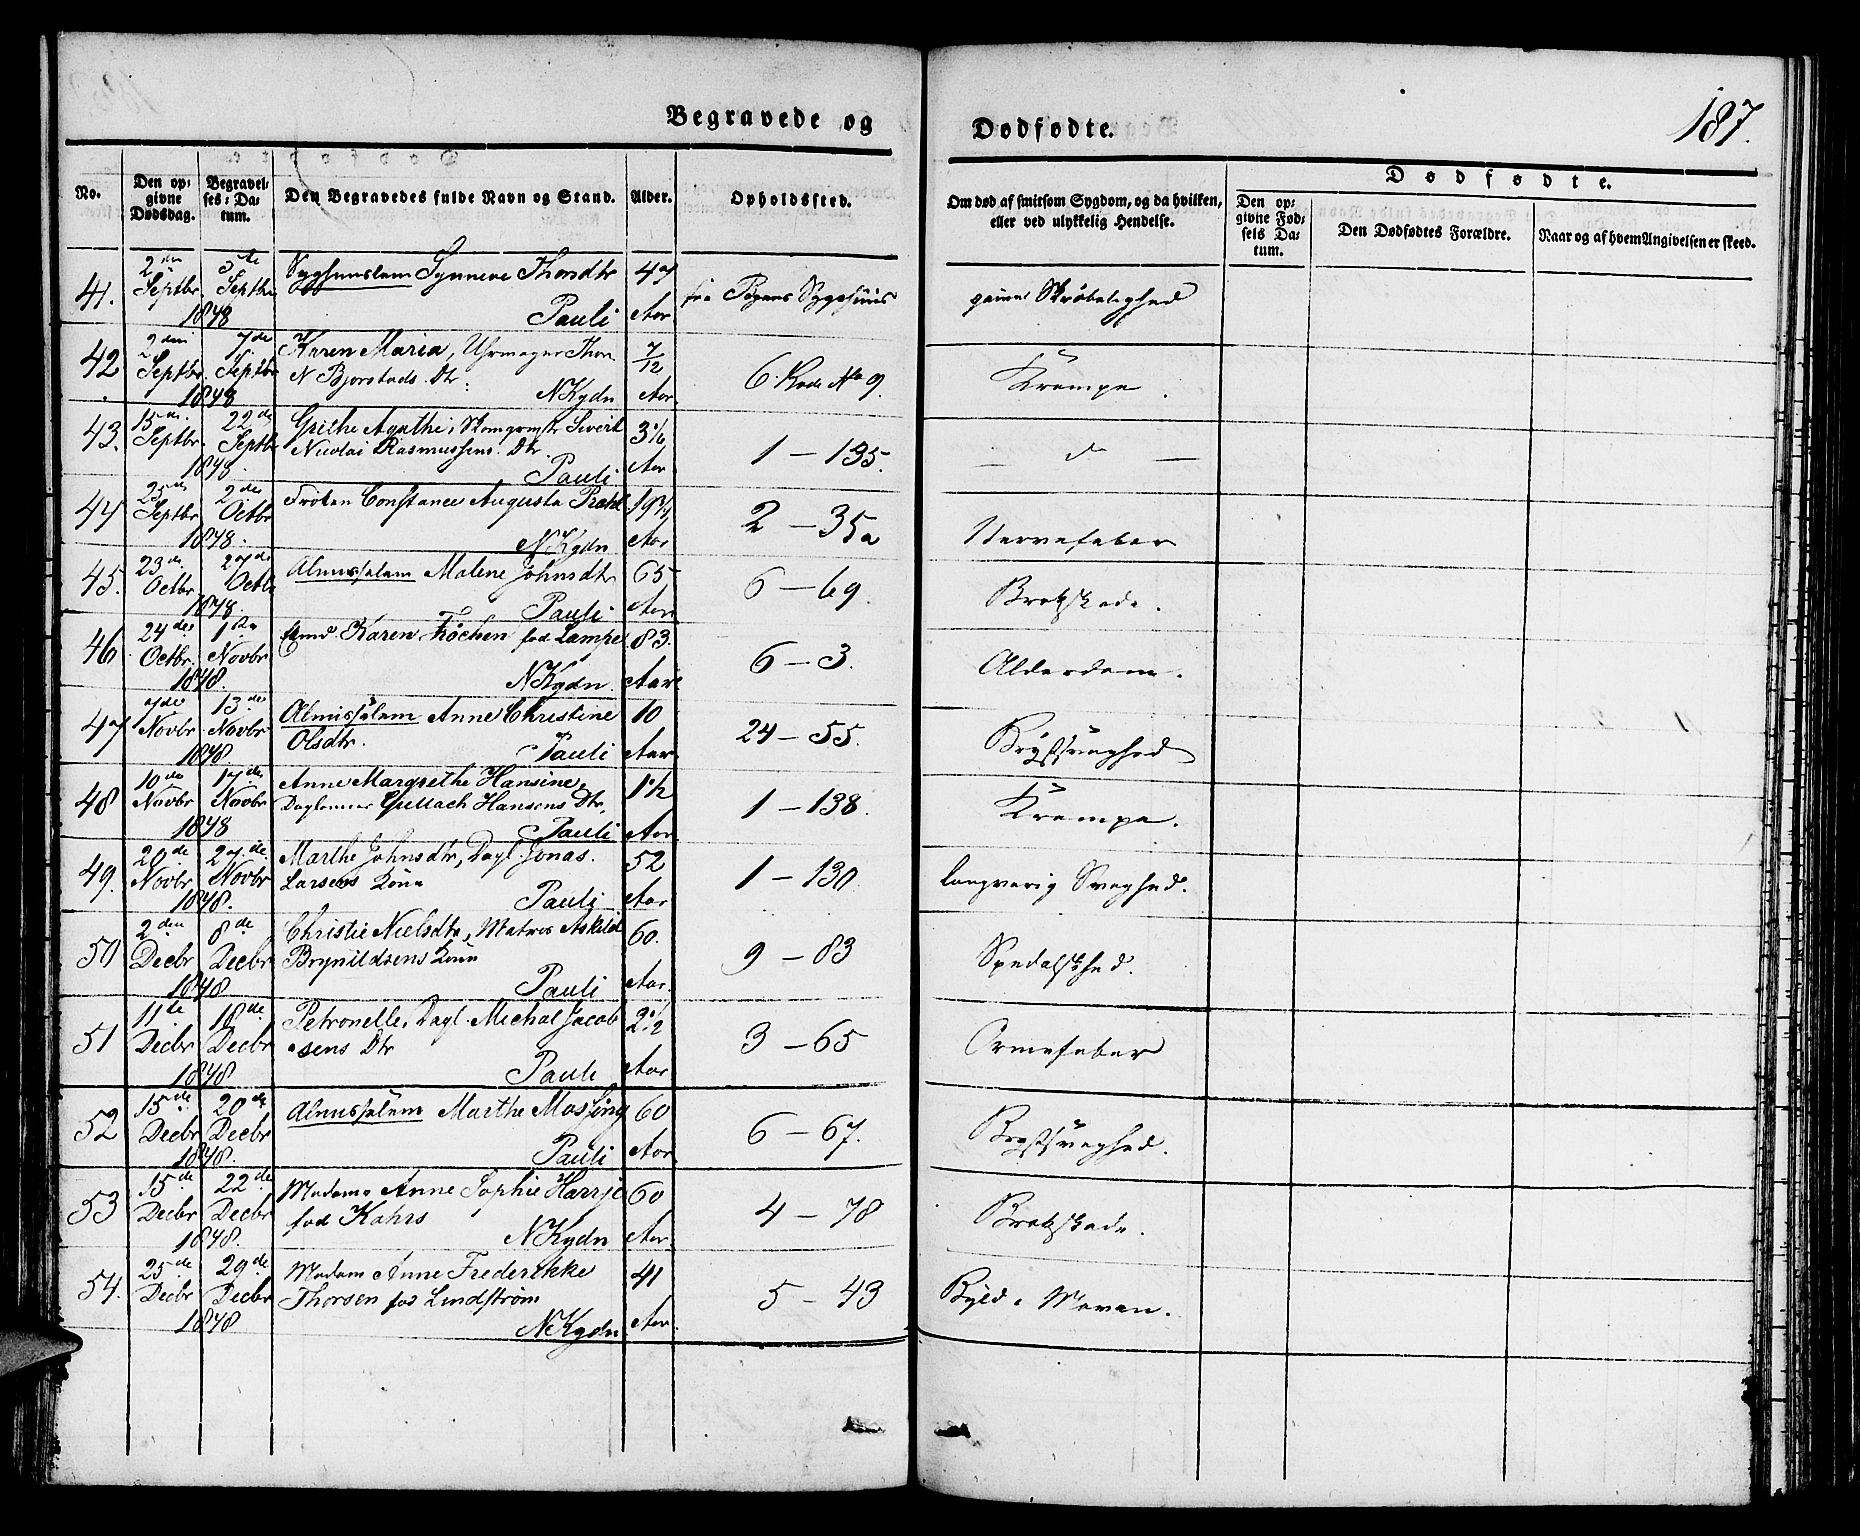 Begravede og
Dødfødte.
187.
No.
Den op-
givne
Dødsdag.
Begravel-
ses-Da-
tum.
Den Begravedes fulde Navn og Stand.
Alder.
Opholdssted.
Om død af smitsom Sygdom, og da hvilken,
eller ved ulykkelig Hendelse.
Dødfødte.
Den op-
givne Fød-
sels Da-
tum.
Den Dødfødtes Forældre.
Naar og af hvem Angivelsen er skeed.
41. 2den Septbr. 5te Septbr 1848
Synneve Thorsdtr
Pauli
47 Aar
fra Byens Sygehuus
Skrøbelighed
42. 2den Septbr. 7de Septbr 1848
Karen Maria, Uhrmager Thor
N Bjorstads Dtr
NKgdn
7/12 Aar
6. Rode No 9.
Krampe.
43. 15de Septbr. 22de Septbr 1848.
Grethe Agathe, Skomgrmstr Sivert
Nicolai Rasmussens Dtr.
Pauli
3 Aar
1 – 135.
— d —
44 25de Septbr 2den Octbr 1848.
Frøken Constance Augusta
NKgdn
19 Aar
2 – 35a
Nervefeber
45. 23de Octbr 27de Octbr 1848.
Almisselem Malene Johnsdtr
Pauli
65 Aar
6 – 69.
Brokskade.
46. 24de Octbr. 1ste Novbr 1848.
Karen Trøchen fød Lampe
NKgdn.
83. Aar
6 – 3.
Alderdom.
47 7de Novbr 13de Novbr 1848.
Almisselem Anne Christine
Olsdtr.
Pauli
10 Aar
24 – 55.
Brystsvaghed
48 10de Novbr 17de Novbr 1848
Anne Margrethe Hansine,
Daglønner Gullach Hansens Dtr,
Pauli
1½ Aar
1 – 138.
Krampe.
49. 20de Novbr 27de Novbr 1848.
Marthe Johnsdtr, Dagl. Jonas
Larsens Kone
Pauli
52 Aar
1 – 130
langvarig Svaghed.
50 2den Decbr 8de Decbr 1848
Christie Nielsdtr, Matros Askild
Brynildsens Kone
Pauli
60. Aar.
9 – 83
Spedalskhed.
51 11te Decbr 18de Decbr 1848
Petronelle, Dagl. Michal Jacob
sens Dtr
Pauli
2½ Aar
3 – 65
Ormefeber
52 15de Decbr 20de Decbr 1848.
Almisselem Marthe Mossing
Pauli
60 Aar.
6 – 67.
Brystsvaghed.
53 15de Decbr 22de Decbr 1848.
Madame Anne Sophie Harrje
fød Kahrs
NKgdn
60 Aar.
4 – 78
Brokskade.
54. 25de Decbr 29de Decbr 1848
Madam Anne Frederikke
Thorsen fød Lindstrøm
NKgdn.
41 Aar.
5 – 43
Byld i Maven.